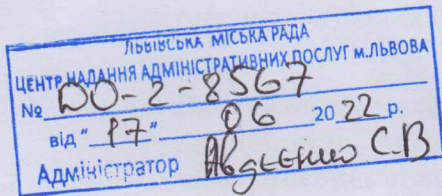 ЛЬВІВСЬКА МІСЬКА РАДА
ЦЕНТР НАДАННЯ АДМІНІСТРАТИВНИХ ПОСЛУГ м.ЛЬВОВА
№ DO-2-8567
від "17" 06 2022 р.
Адміністратор Авдєєнко С.В